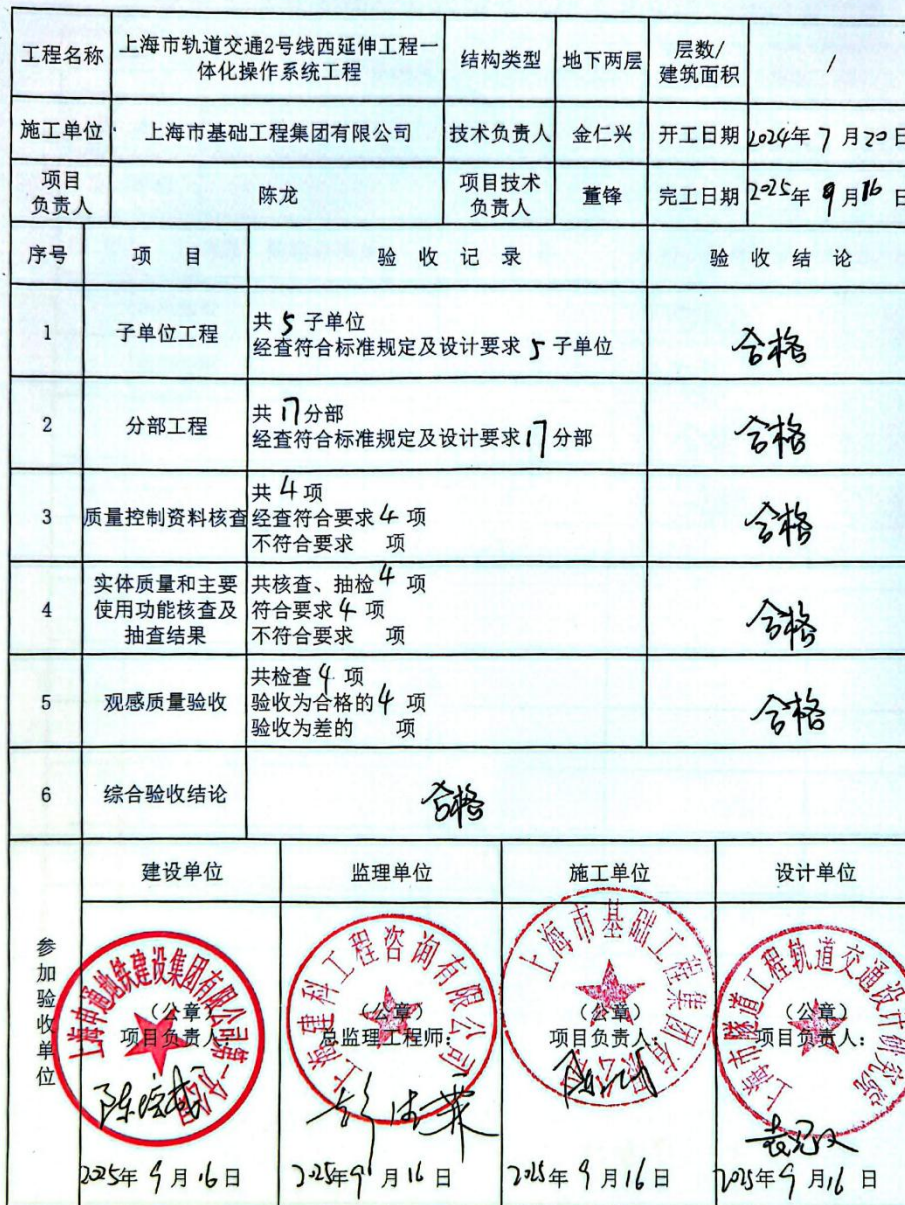 工程名称 上海市轨道交通2号线西延伸工程一体化操作系统工程 结构类型 地下两层 层数/建筑面积 /
施工单位 上海市基础工程集团有限公司 技术负责人 金仁兴 开工日期 2024年7月20日
项目负责人 陈龙 项目技术负责人 董锋 完工日期 2025年9月16日
序号 项目 验收记录 验收结论
1 子单位工程 共5子单位
经查符合标准规定及设计要求5子单位 合格
2 分部工程 共17分部
经查符合标准规定及设计要求17分部 合格
3 质量控制资料核查 共4项
经查符合要求4项
不符合要求 项 合格
4 实体质量和主要使用功能核查及抽查结果 共核查、抽检4项
符合要求4项
不符合要求 项 合格
5 观感质量验收 共检查4项
验收为合格的4项
验收为差的 项 合格
6 综合验收结论 合格
参加验收单位
建设单位 监理单位 施工单位 设计单位
上海申通地铁建设集团有限公司第一分公司
上海建科工程咨询有限公司
上海市基础工程集团有限公司
上海市隧道工程轨道交通设计研究院
(公章) (公章) (公章) (公章)
项目负责人: 总监理工程师: 项目负责人: 项目负责人:
2025年9月16日 2025年9月16日 2025年9月16日 2025年9月16日